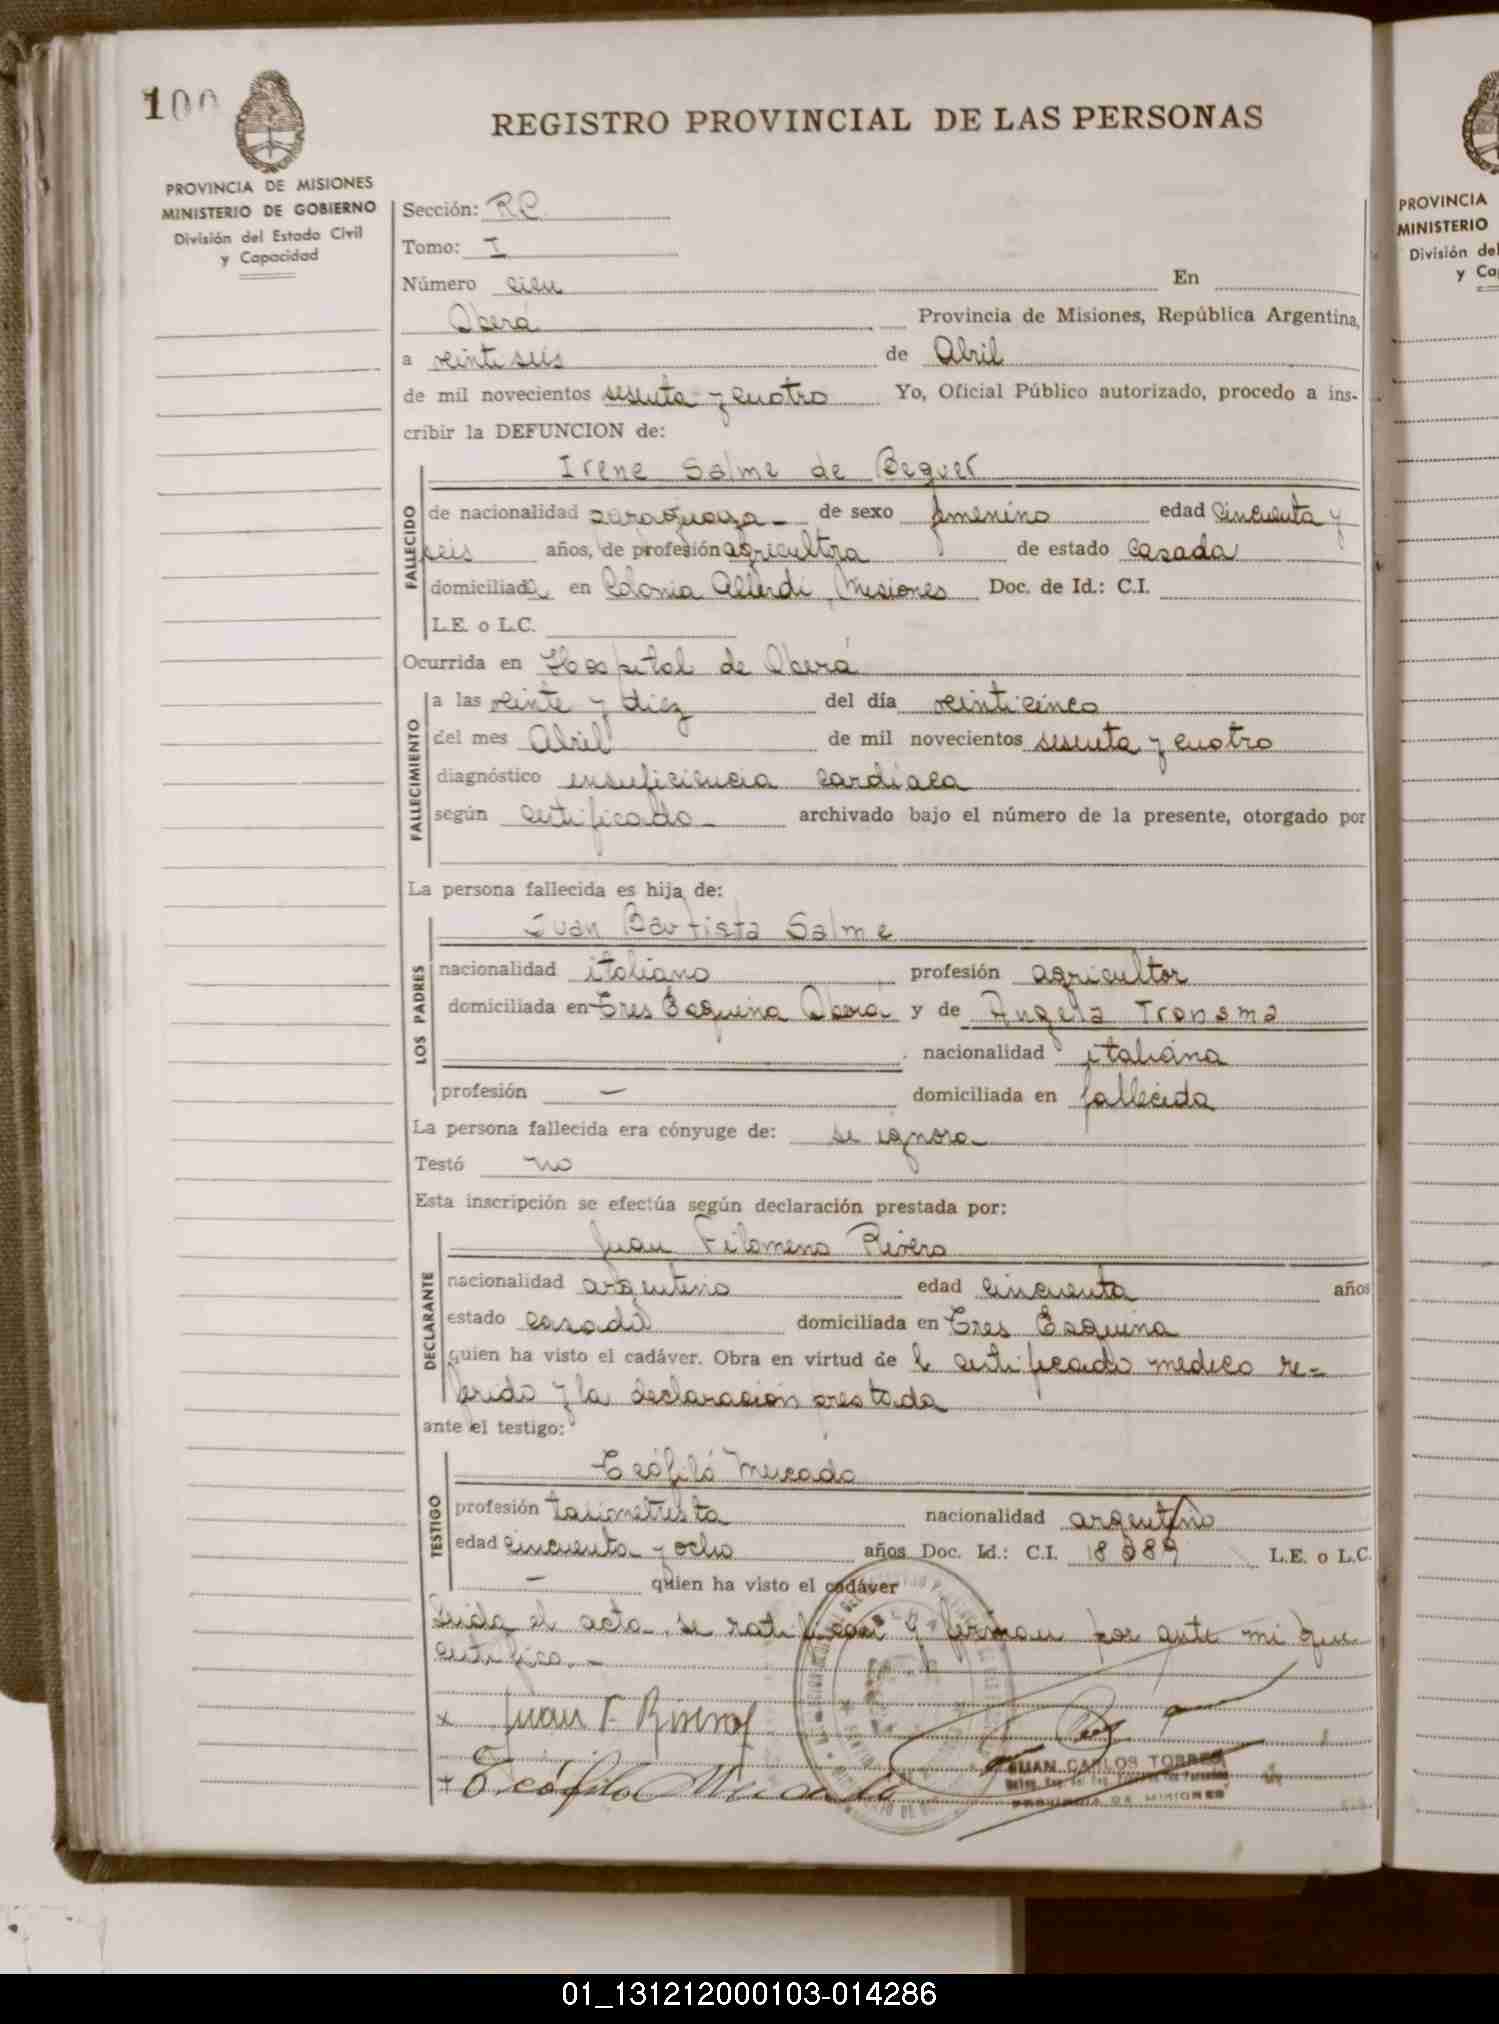 100
REGISTRO PROVINCIAL DE LAS PERSONAS
PROVINCIA DE MISIONES
MINISTERIO DE GOBIERNO
División del Estado Civil
y Capacidad
Sección: RC
Tomo: I
Número cien En
Oberá Provincia de Misiones, República Argentina,
a veintiseis de Abril
de mil novecientos sesenta y cuatro Yo, Oficial Público autorizado, procedo a ins-
cribir la DEFUNCION de:
Irene Salme de Bequer
FALLECIDO
de nacionalidad paraguaya - de sexo femenino edad cincuenta y
seis años, de profesión agricultora de estado casada
domiciliada en Colonia Alberdi, Misiones Doc. de Id.: C.I.
L.E. o L.C.
Ocurrida en Hospital de Oberá
FALLECIMIENTO
a las veinte y diez del día veinticinco
del mes Abril de mil novecientos sesenta y cuatro
diagnóstico insuficiencia cardíaca
según certificado - archivado bajo el número de la presente, otorgado por
La persona fallecida es hija de:
LOS PADRES
Juan Bautista Salme
nacionalidad italiano profesión agricultor
domiciliada en Tres Esquina Oberá y de Angela Tronsma
nacionalidad italiana
profesión — domiciliada en fallecida
La persona fallecida era cónyuge de: se ignora -
Testó no
Esta inscripción se efectúa según declaración prestada por:
DECLARANTE
Juan Filomeno Rivero
nacionalidad argentino edad cincuenta años
estado casado domiciliada en Tres Esquina
quien ha visto el cadáver. Obra en virtud de l certificado medico re=
ferido y la declaración prestada
ante el testigo:
TESTIGO
Teófilo Mercado
profesión taximetrista nacionalidad argentino
edad cincuenta y ocho años Doc. Id.: C.I. L.E. o L.C.
— quien ha visto el cadáver
Leída el acta, se ratifican y firman por ante mi que
certifico. -
x Juan F Rivero
+ Teófilo Mercado
JUAN CARLOS TORRES
PROVINCIA DE MISIONES
PROVINCIA
MINISTERIO
División del
y Ca
01_131212000103-014286